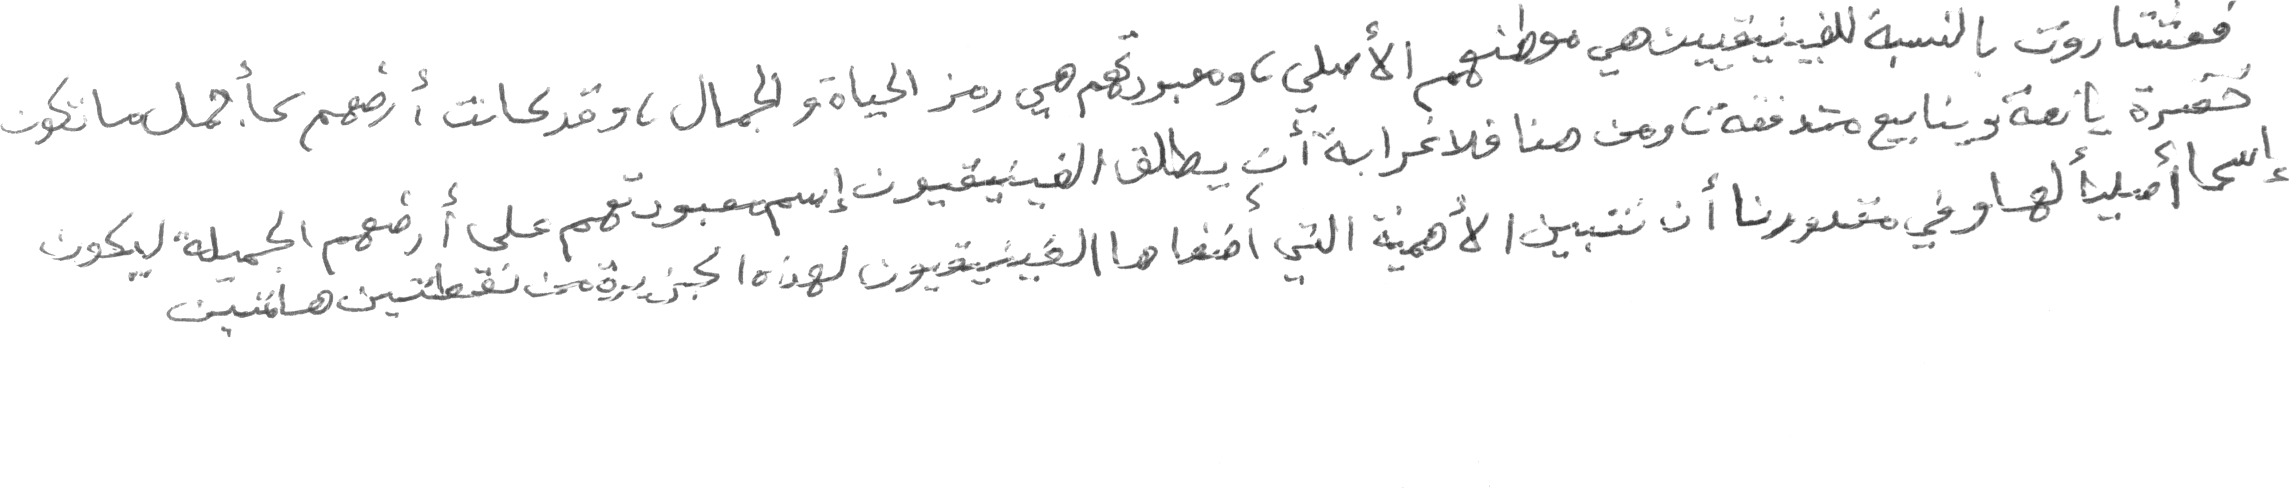 فعشتاروت بالنسبة للفينيقيين هي موطنهم الأصلي، ومعبودتهم هي رمز الحياة و الجمال، وقد كانت أرضهم كأجمل ما تكون
خضرة يانعة وينابيع متدفقة، ومن هنا فلا غرابة أن يطلق الفينيقيون إسم معبودتهم على أرضهم الجميلة ليكون
إسما أصليأ لها وفي مقدورنا أن نتبين الأهمية التي أضفاها الفينيقيون لهذه الجزيرة من نقطتين هامتين